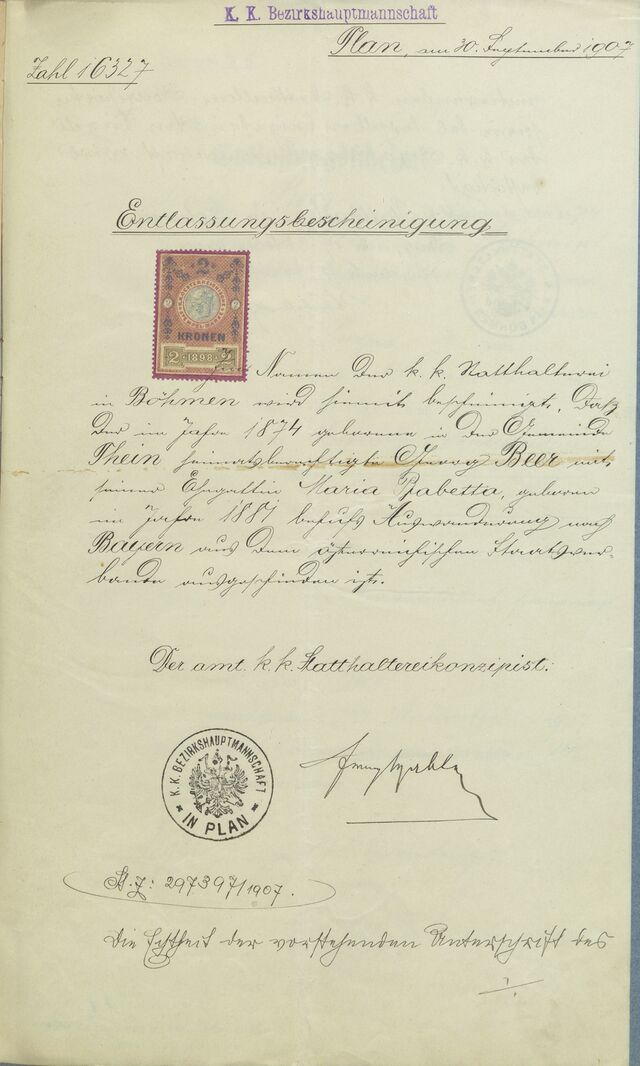 K. K. Bezirkshauptmannschaft
Plan, am 30. September 1907
Zahl 16327
Entlassungsbescheinigung
2
KRONEN
2 1898 2
Namen der k. k. Statthalterei
in Böhmen wird hiemit bescheinigt, daß
der im Jahre 1874 geborene in der Gemeinde
Thein heimatsberechtigte Georg Beer mit
seiner Ehegattin Maria Babetta, geboren
im Jahre 1881 behufs Auswanderung nach
Bayern aus dem österreichischen Staatsver-
bande ausgeschieden ist.
Der amt. k. k. Statthaltereikonzipist:
K. K. BEZIRKSHAUPTMANNSCHAFT
IN PLAN
St. Z: 297397/1907.
Die Echtheit der vorstehenden Unterschrift des
./.